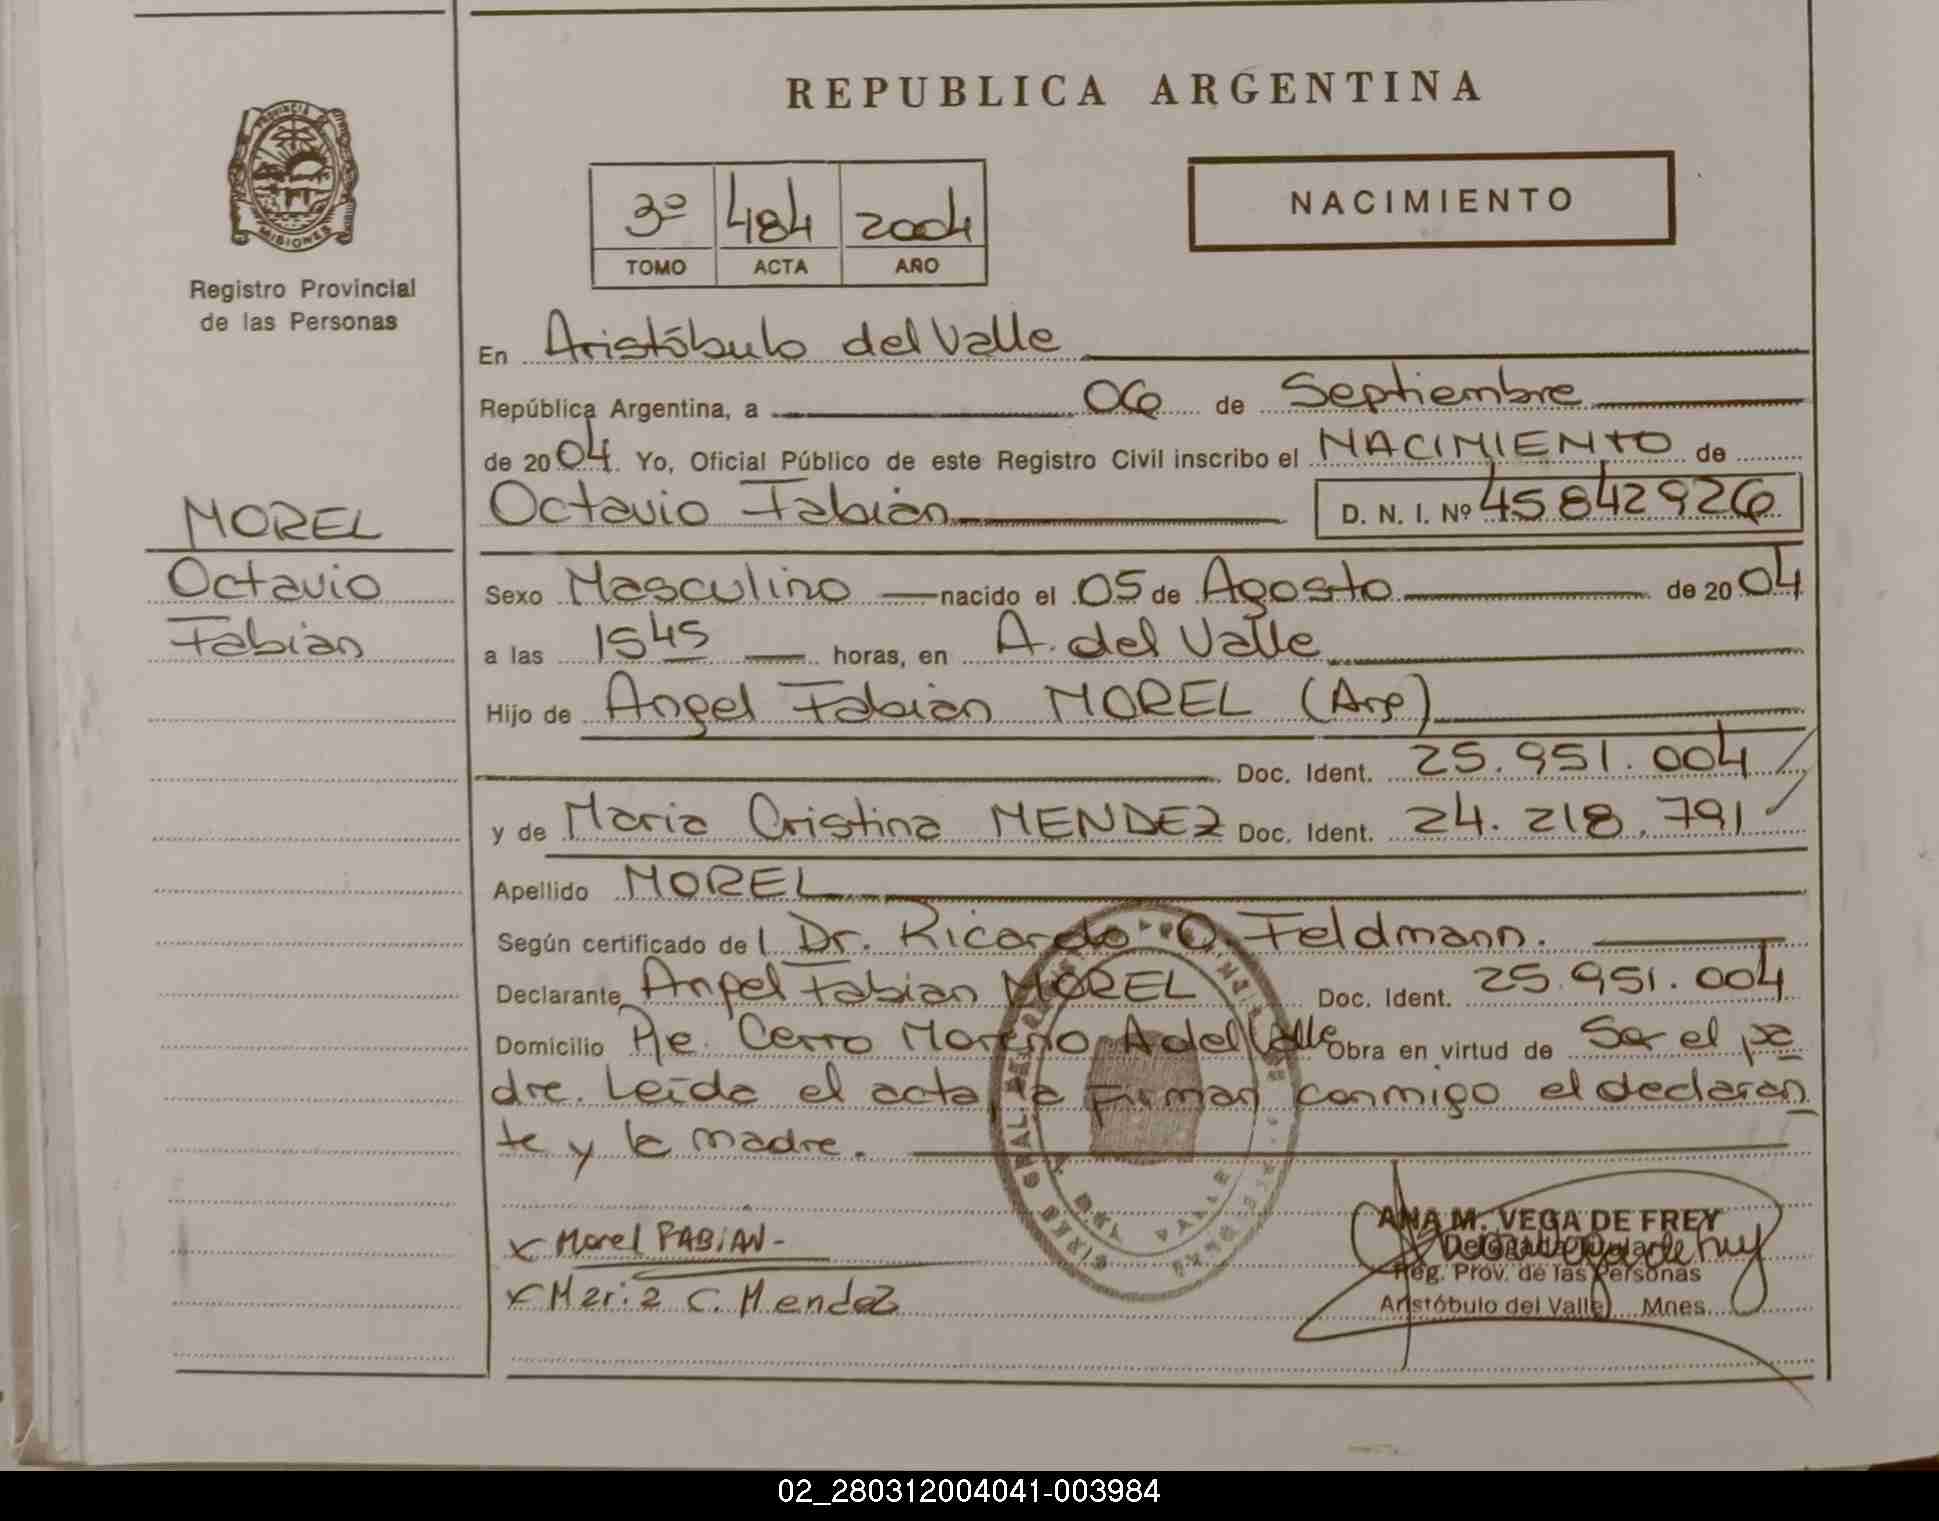 REPUBLICA ARGENTINA
PROVINCIA DE
MISIONES
Registro Provincial
de las Personas
3º 484 2004
TOMO ACTA AÑO
NACIMIENTO
En Aristóbulo del Valle
República Argentina, a 06 de Septiembre
de 2004. Yo, Oficial Público de este Registro Civil inscribo el NACIMIENTO de
Octavio Fabián D. N. I. Nº 45842926
MOREL
Octavio
Fabián
Sexo Masculino nacido el 05 de Agosto de 2004
a las 15 45 horas, en A. del Valle
Hijo de Angel Fabián MOREL (Arg)
Doc. Ident. 25.951.004
y de Maria Cristina MENDEZ Doc. Ident. 24.218.791
Apellido MOREL
Según certificado del Dr. Ricardo O. Feldmann.
Declarante Angel Fabian MOREL Doc. Ident. 25.951.004
Domicilio Pje. Cerro Moreno A del Valle Obra en virtud de Ser el pa
dre. Leída el acta, la firman conmigo el declaran
te y la madre.
x Morel FABIAN-
x Maria C. Mendez
ANA M. VEGA DE FREY
Delegada Titular
Reg. Prov. de las Personas
Aristóbulo del Valle Mnes.
02_280312004041-003984